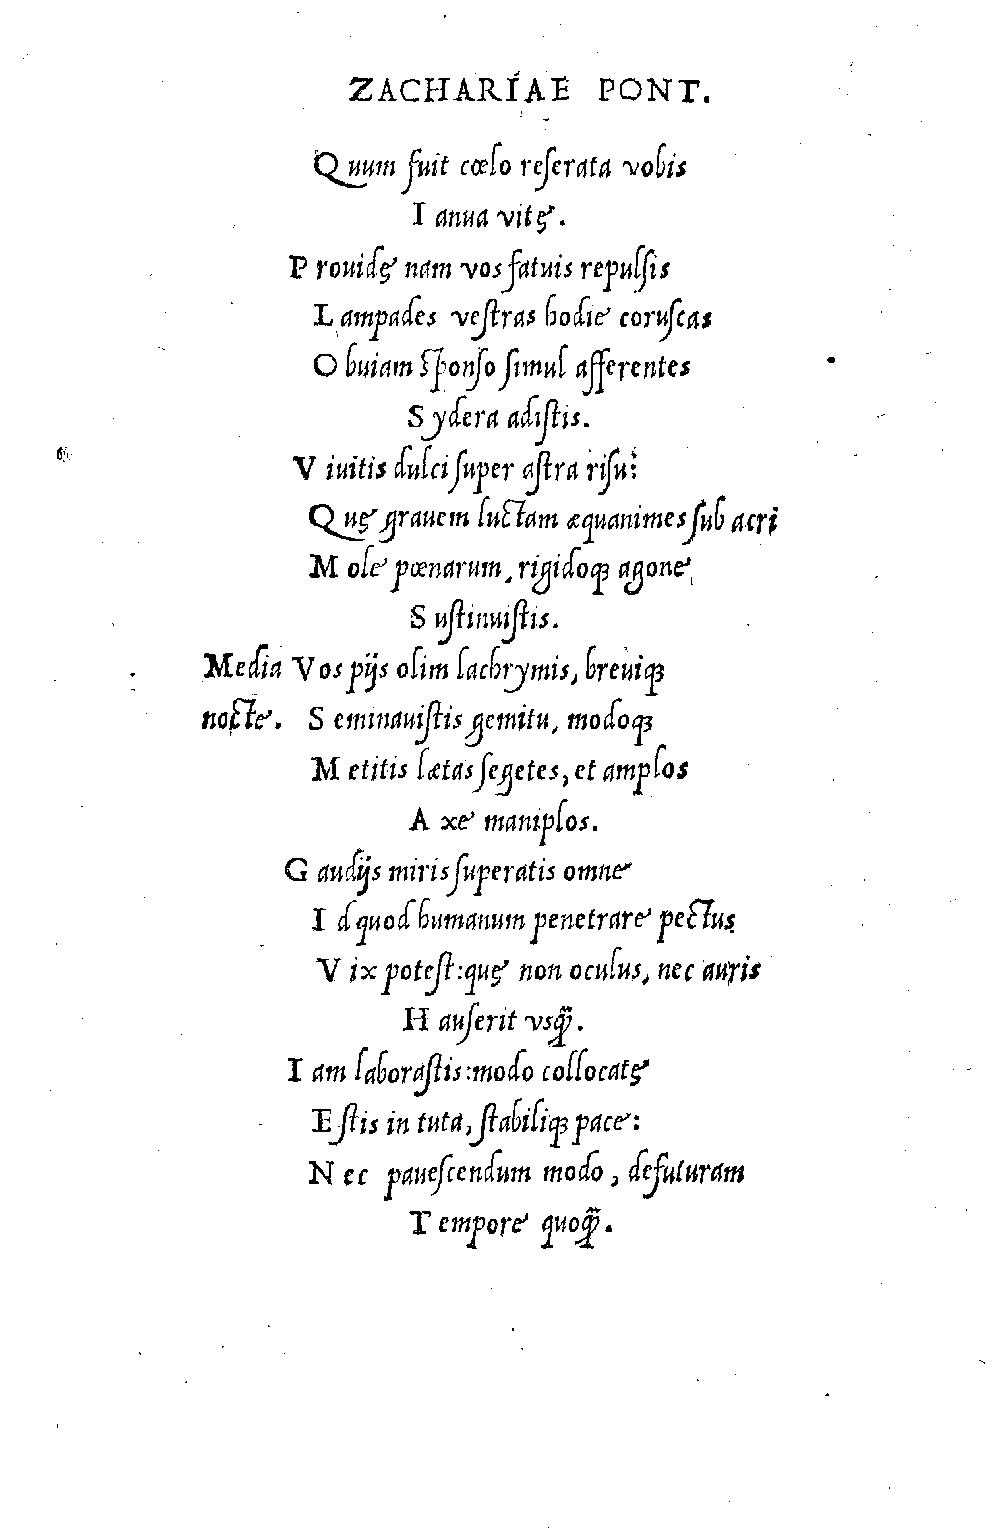 ZACHARÍAE PONT.
Quum fuit cœlo reserata vobis
Ianua vitę.
Prouidę nam vos fatuis repulsis
Lampades vestras hodie coruscas
Obuiam sponso simul afferentes
Sydera adistis.
Viuitis dulci super astra risu:
Quę grauem luctam æquanimes sub acri
Mole pœnarum, rigidoqꝫ agone
Sustinuistis.
Media Vos pijs olim lachrymis, breuiqꝫ
nocte. Seminauistis gemitu, modoqꝫ
Metitis lætas segetes, et amplos
Axe maniplos.
Gaudijs miris superatis omne
Id quod humanum penetrare pectus
Vix potest: quę non oculus, nec auris
Hauserit vsqꝫ̃.
Iam laborastis: modo collocatę
Estis in tuta, stabiliqꝫ pace:
Nec pauescendum modo, defuturam
Tempore quoqꝫ̃.